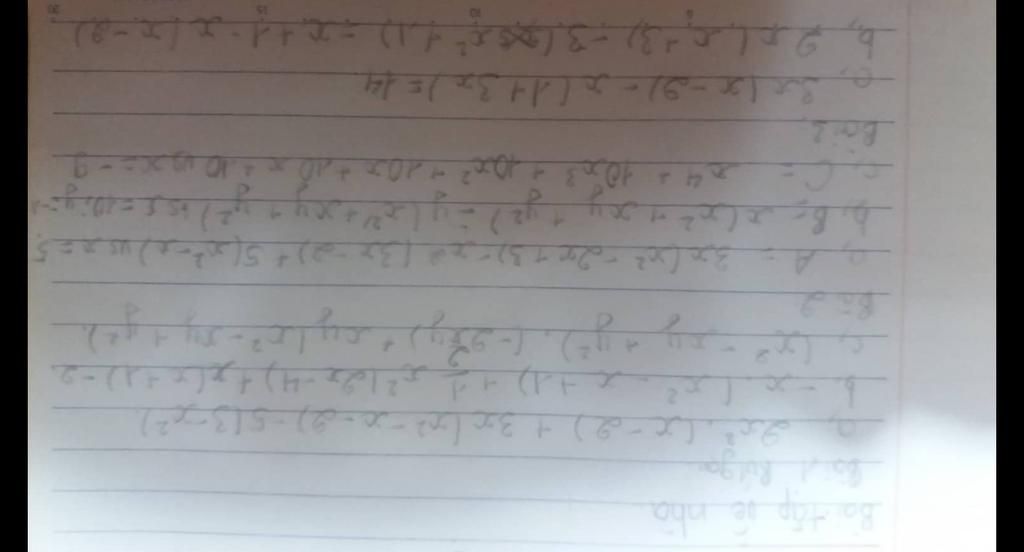 Bài tập về nhà
Bài 1 Rút gọn
a, 2x². (x - 2) + 3x(x² - x - 2) - 5(3 - x²)
b, - x. (x² - x + 1) + 1/2 x²(2x - 4) + x(x + 1) - 2
c, (x² - xy + y²). (-2xy) + xy(x² - xy + y²).
Bài 2
a, A = 3x(x² - 2x + 3) - x²(3x - 2) + 5(x² - x) với x = 5
b, B = x(x² + xy + y²) - y(x² + xy + y²) với x = 10; y = -1
c, C = x4 + 10x3 + 10x² + 10x + 10 với x = - 9
Bài 3
a, 3x(x - 2) - x(1 + 3x) = 14
b, 2x(x + 3) - 3(x² + 1) = x + 1 - x(x - 2)